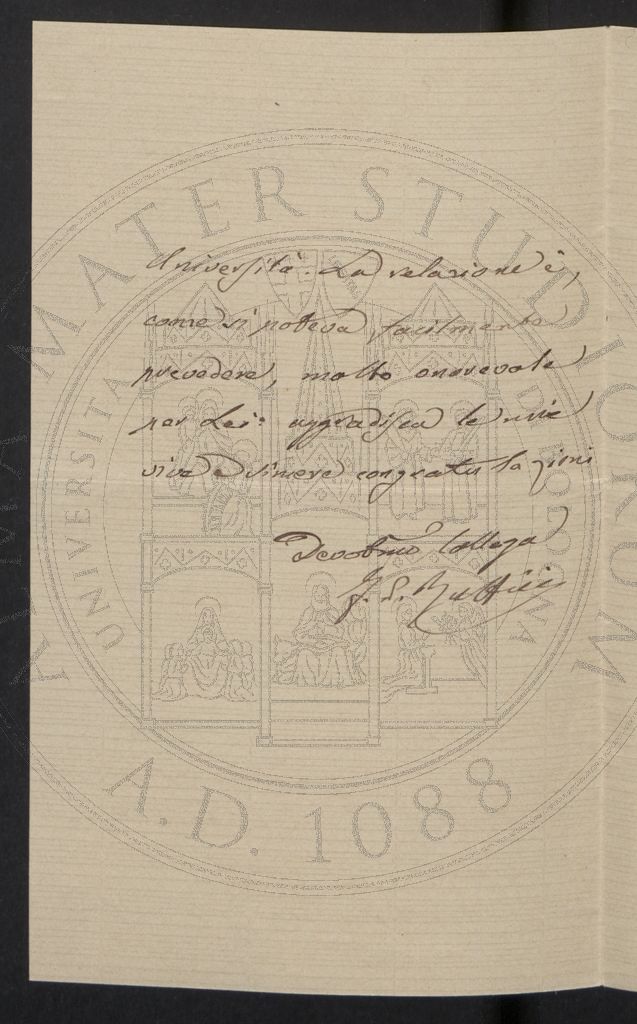 Università. La relazione è,
come si poteva facilmente
prevedere, molto onorevole
per Lei: aggradisca le mie
vive e sincere congratulazioni
Devotmo Collega
ALMA MATER STUDIORUM
UNIVERSITÀ DI BOLOGNA
A.D. 1088